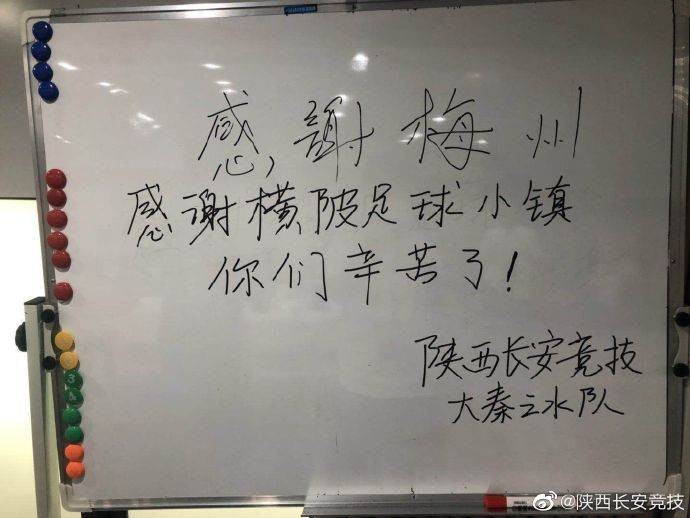 感謝梅州
感谢横陂足球小镇
你们辛苦了！
陕西长安竞技
大秦之水队
@陕西长安竞技